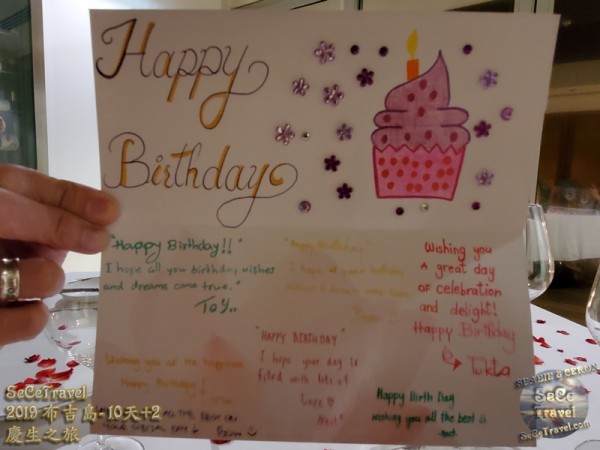 Happy
Birthday
"Happy Birthday!!"
I hope all you birthday wishes
and dreams come true."
Toy..
Happy Birthday
I hope all your birthday
Wishing you
A great day
of celebration
and delight!
Happy Birthday
Tukta
"HAPPY BIRTHDAY"
I hope your day is
filled with lots of
Love
Wishing you all the happiness
Happy Birthday!
ALL THE BEST ON
YOUR SPECIAL DAY
Happy Birth Day
wishing you all the best is
SeCeTravel
2019 布吉島-10天+2
慶生之旅
SeCe
Travel
SeCeTravel.com